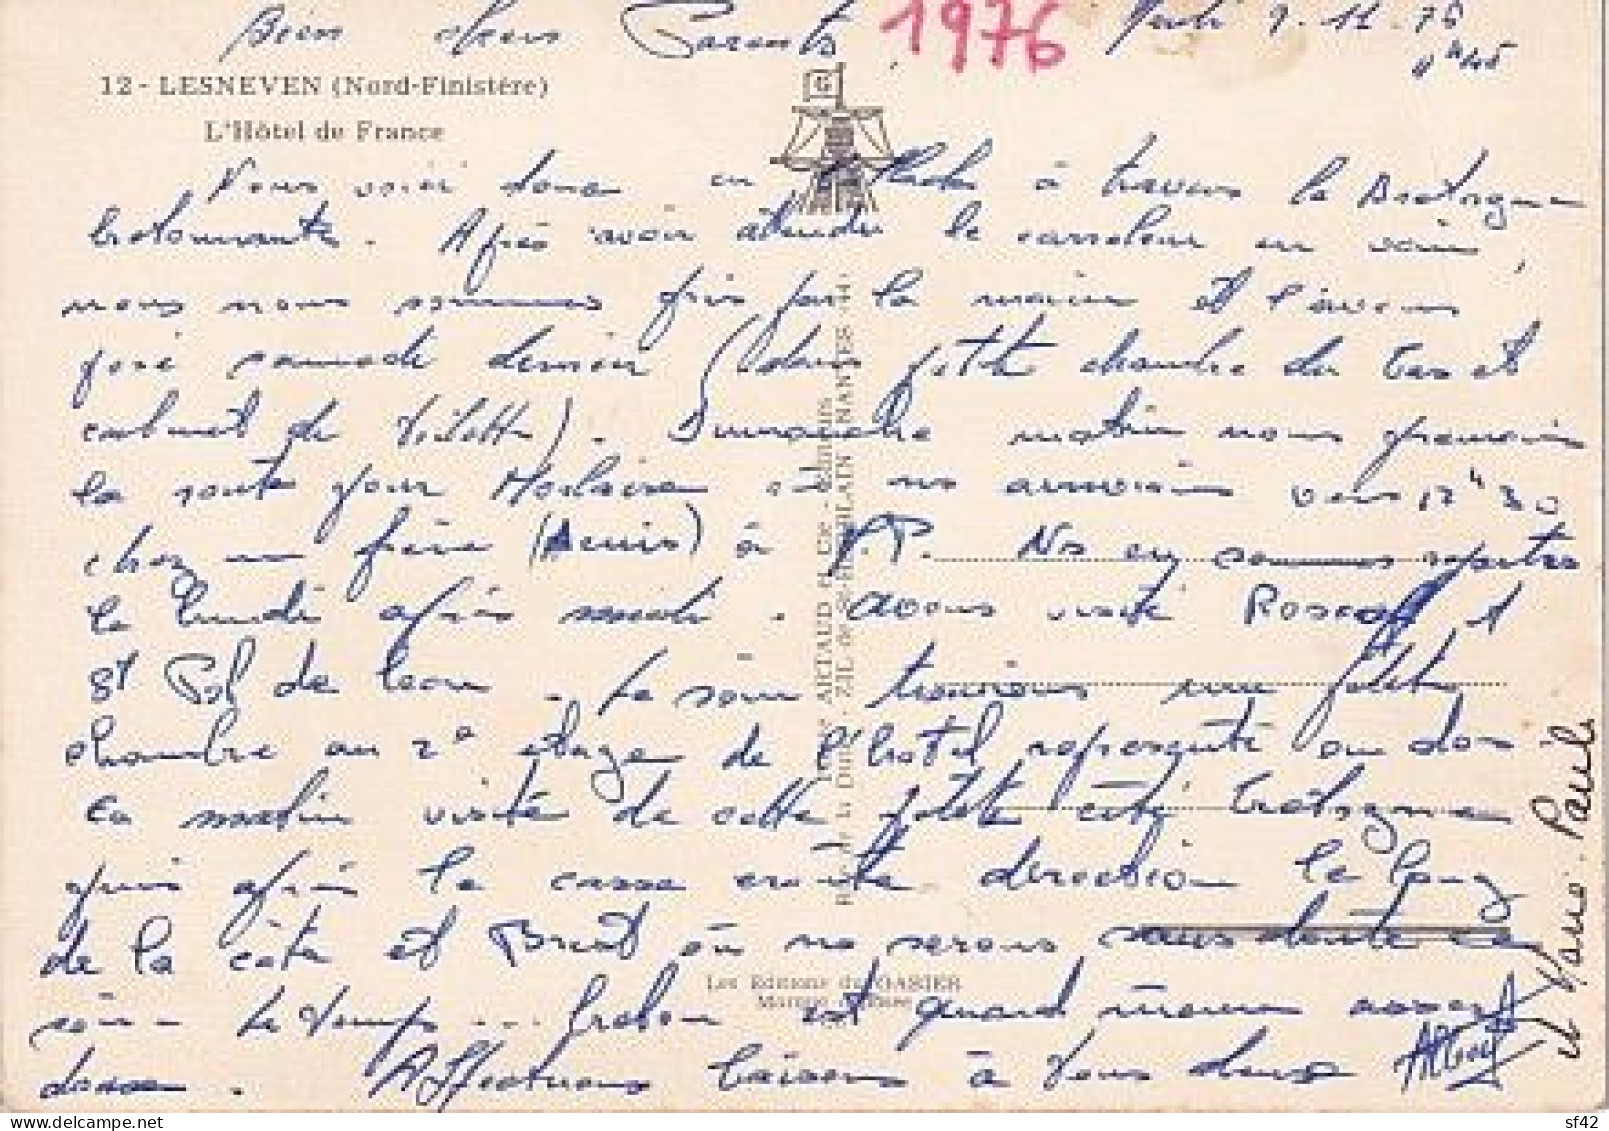 Bien chers Parents
1976
9-11-76
12 - LESNEVEN (Nord-Finistère)
L'Hôtel de France
G
Nous voici donc en à travers la Bretagne
bretonnante. Après avoir attendu le carreleur en vain,
nous nous sommes pris par la main et l'avons
posé samedi dernier (dans petite chambre du bas et
cabinet de toilette). Dimanche matin nous prenions
la route pour Morlaix où ns arrivions vers 12h30
chez frère (Denis) à . Ns en sommes repartis
le lundi après midi. avons visité Roscoff et
St Pol de Leon. Le soir trouvions une petite
chambre au 2e étage de l'hotel représenté au dos
Ce matin visité de cette petite cité bretonne
puis après la casse croûte direction le long
de la côte et Brest où ns serons sans doute ce
soir. Le temps ... breton est quand même assez
doux. Affectueux baisers à Vous deux Albert
et Marie-Paule
Les Editions du GABIER